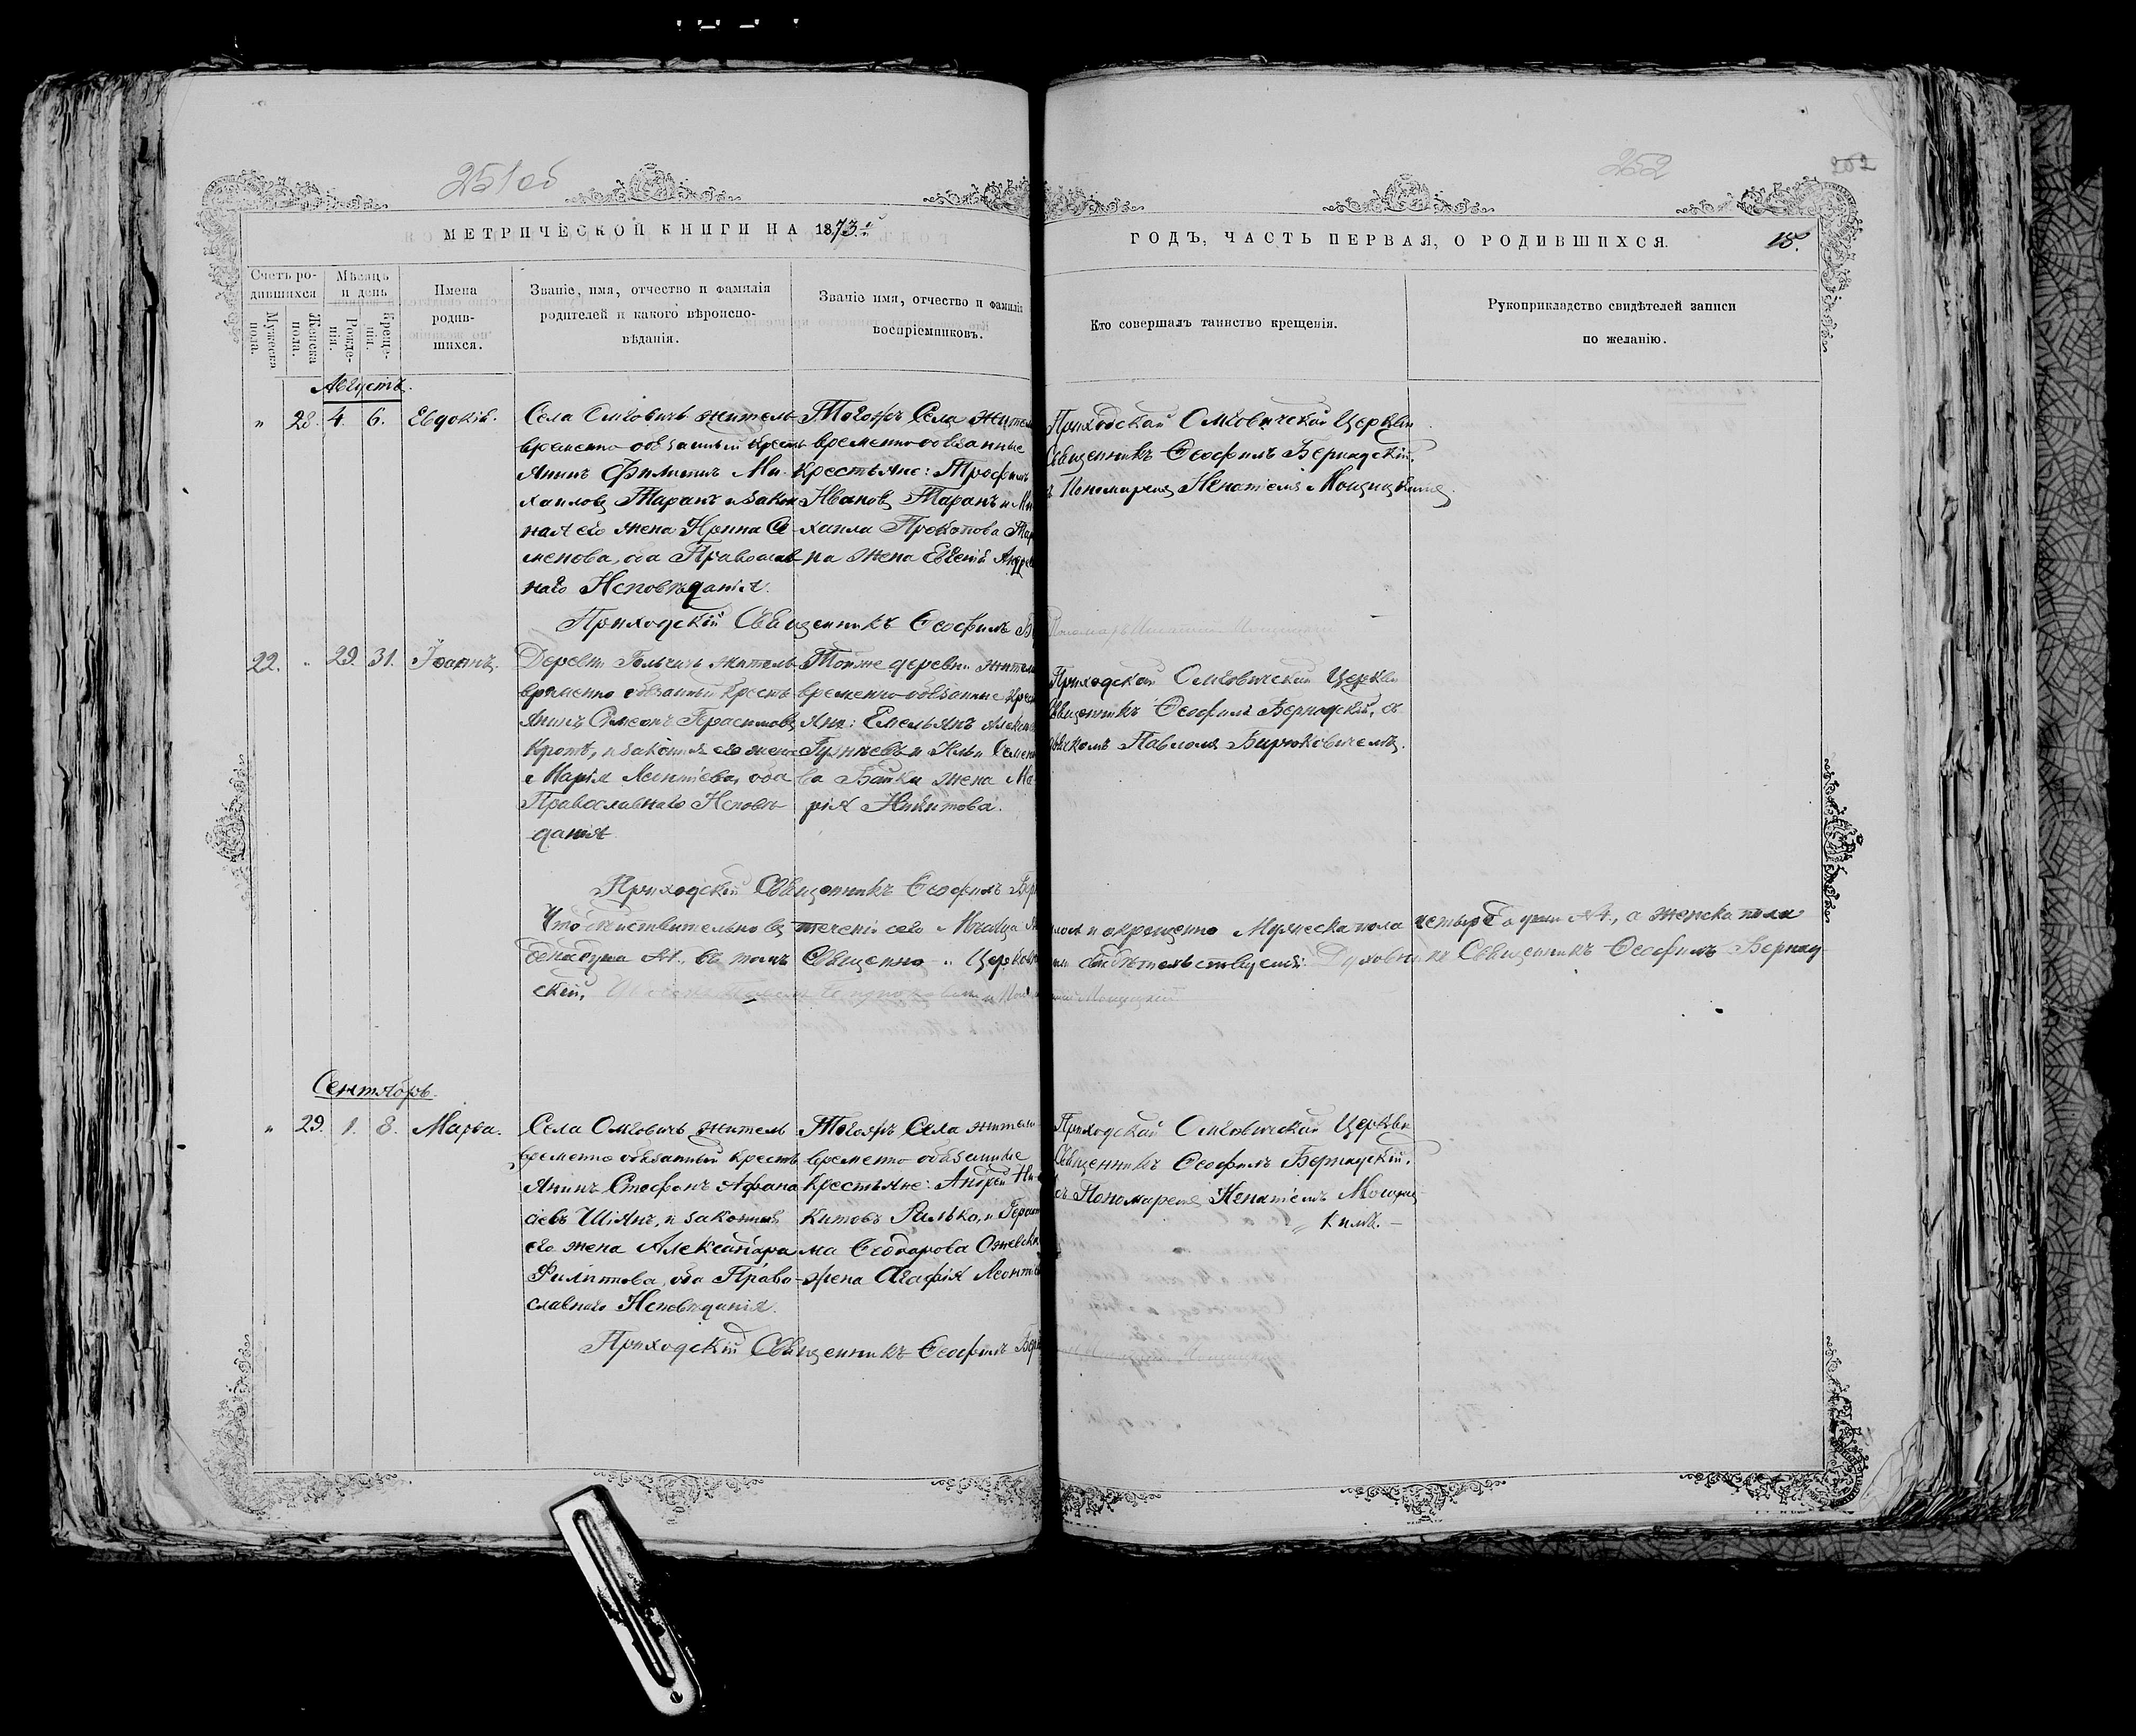 251об
252
252
МЕТРИЧЕСКОЙ КНИГИ НА 1873й
ГОДЪ, ЧАСТЬ ПЕРВАЯ, О РОДИВШИХСЯ.
18.
Счетъ ро-
дившихся
Мужеска пола.
Женска пола.
Мѣсяцъ
и день
Рожде-
нія.
Креще-
нія.
Имена
родив-
шихся.
Званіе, имя, отчество и фамилія
родителей и какого вѣроиспо-
вѣданія.
Званіе имя, отчество и фамилія
воспріемниковъ.
Кто совершалъ таинство крещенія.
Рукоприкладство свидѣтелей записи
по желанію.
Августъ.
" 28. 4. 6. Евдокія.
Села Омговичъ житель
временно обязанный кресть
янинъ Филиппъ Ми-
хаиловъ Таранъ и закон
ная его жена Ирина Се-
менова, оба Православ
наго Исповѣданія.
Тогожъ Села жители
временнообязанные
Крестьяне: Трофимъ
Ивановъ Таранъ и Ми
хаила Прокопова Тар
на жена Евгенія Андре
Приходской Омговичской Церкви
Священникъ Ѳеофилъ Бернадскій,
съ Пономаремъ Игнатіемъ Мощицкимъ.
Приходскій Священникъ Ѳеофилъ Бер
Пономарь Игнатій Мощицкій
22. " 29. 31. Іоаннъ.
Деревни Гольчичъ житель
временно обязанный кресть
янинъ Симеонъ Герасимовъ
Кротъ, и законная его жена
Марія Леонтіева, оба
Православнаго Исповѣ-
данія
Тойже деревни жители
временно-обязанные крес
яне: Емельянъ Алексѣ
и Ильи Семено
ва Байки жена Ма-
рія Никитова.
Приходской Омговичской Церкви
Священникъ Ѳеофилъ Бернадскій, съ
дьячкомъ Павломъ Бирюковичемъ.
Приходскій Священникъ Ѳеофилъ Бер
Что дѣйствительно въ теченіи сего Мѣсяца
и окрещено Мужеска пола четыре души №4., а женска пола
одна душа №1., въ томъ Священно-Церковно
свидѣтельствуемъ: Духовникъ Священникъ Ѳеофилъ Бернад-
скій,
Мощицкій
Сентябрь.
" 29. 1. 8. Марѳа.
Села Омговичъ житель
временно обязанный кресть
янинъ Стефанъ Афана
сіевъ Шіянъ, и законная
его жена Александра
Филиппова, оба Право-
славнаго Исповѣданія.
Тогожъ Села жители
временно обязанные
Крестьяне: Андрей Ни-
китовъ Ралько, и Гераси
ма Ѳеодорова
жена Агафія Леонтіе
Приходской Омговичской Церкви
Священникъ Ѳеофилъ Бернадскій,
съ Пономаремъ Игнатіемъ Мощиц
кимъ.
Приходскій Священникъ Ѳеофилъ Бер